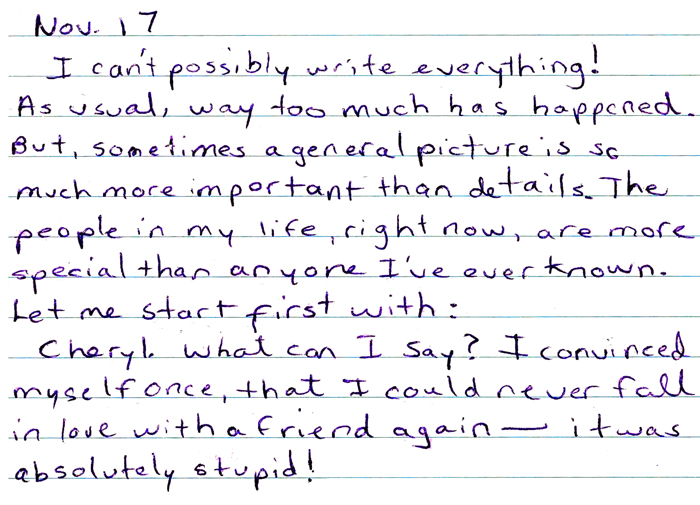 Nov. 17
I can't possibly write everything!
As usual, way too much has happened.
But, sometimes a general picture is so
much more important than details. The
people in my life, right now, are more
special than anyone I've ever known.
Let me start first with:
Cheryl. What can I say? I convinced
myself once, that I could never fall
in love with a friend again — it was
absolutely stupid!